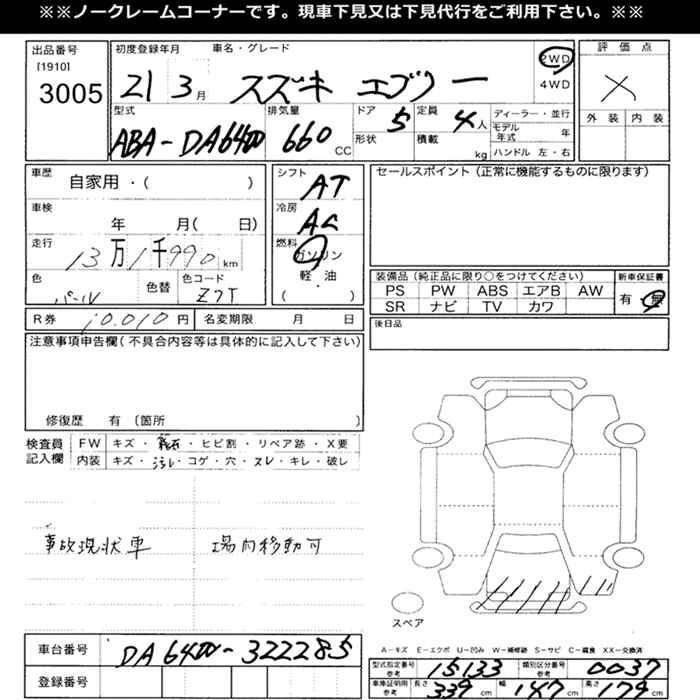 ※※ノークレームコーナーです。現車下見又は下見代行をご利用下さい。※※
出品番号
[1910]
3005
初度登録年月
車名・グレード
21 3月 スズキ エブリー
2WD
4WD
評価点
X
外装 内装
型式
ABA-DA64W
排気量
660 CC
ドア
5
形状
定員
4人
積載 kg
ディーラー・並行
モデル年式 年
ハンドル 左・右
車歴
自家用・( )
車検
年 月( 日)
走行
13万1千990km
色
パール
色替
色コード
Z7T
シフト
AT
冷房
AC
燃料
ガソリン
軽・油
( ・ )
セールスポイント(正常に機能するものに限ります)
装備品(純正品に限り○をつけてください)
PS PW ABS エアB AW
SR ナビ TV カワ
新車保証書
有・無
R券 10,010円
名変期限 月 日
後日品
注意事項申告欄(不具合内容等は具体的に記入して下さい)
修復歴 有 〔箇所 〕
検査員記入欄
FW キズ・飛石・ヒビ割・リペア跡・X要
内装 キズ・汚レ・コゲ・穴・スレ・キレ・破レ
事故現状車 場内移動可
スペア
A-キズ E-エクボ U-凹み W-補修跡 S-サビ C-腐食 XX-交換済
車台番号
DA64W-322285
登録番号
型式指定番号参考 15133
類別区分番号参考 0037
車庫証明用参考 長さ 339cm 幅 147cm 高さ 179cm